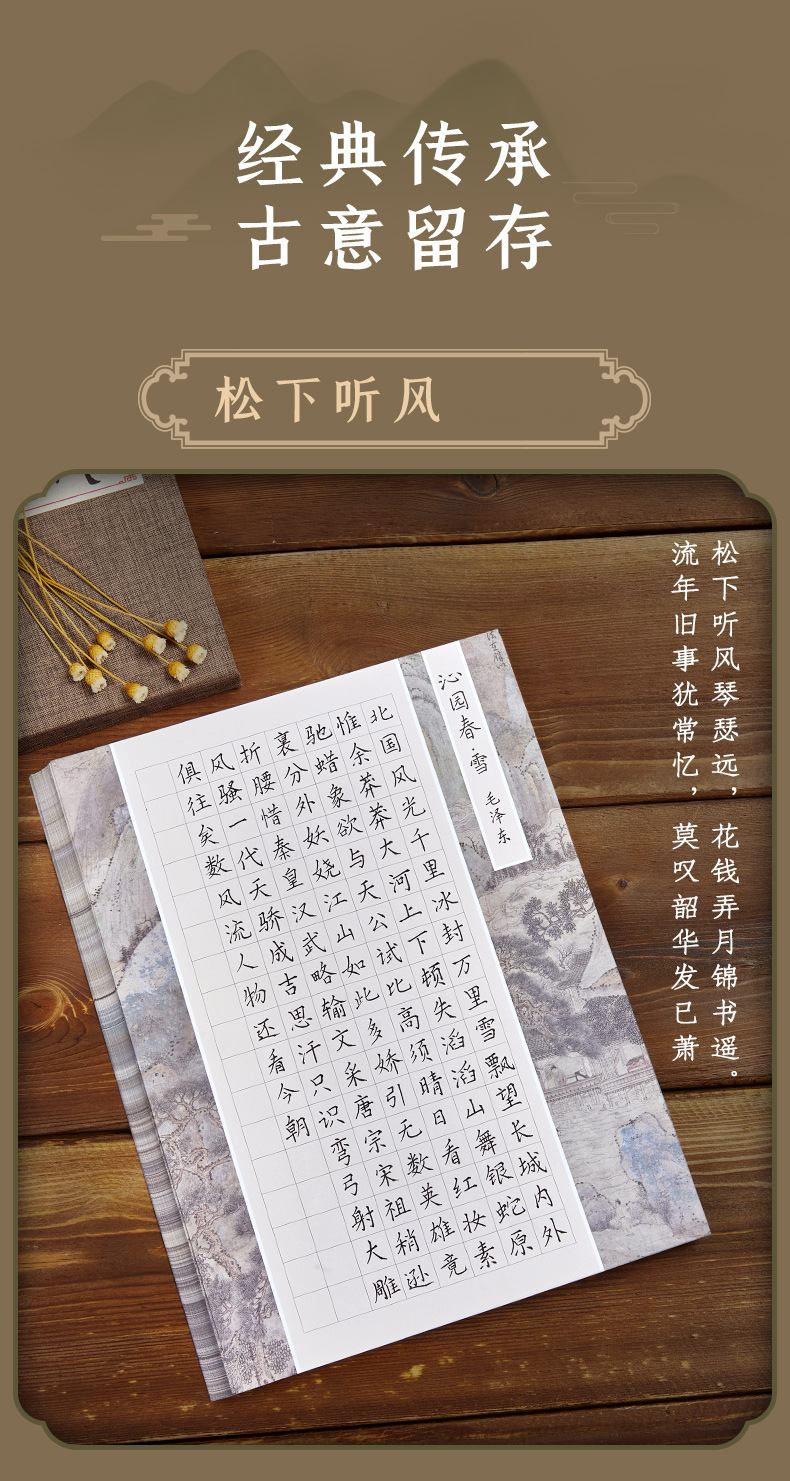 经典传承
古意留存
松下听风
松下听风琴瑟远，花钱弄月锦书遥。
流年旧事犹常忆，莫叹韶华发已萧
沁园春·雪 毛泽东
北国风光千里冰封万里雪飘望长城内外
惟余莽莽大河上下顿失滔滔山舞银蛇原
驰蜡象欲与天公试比高须晴日看红妆素
裹分外妖娆江山如此多娇引无数英雄竞
折腰惜秦皇汉武略输文采唐宗宋祖稍逊
风骚一代天骄成吉思汗只识弯弓射大雕
俱往矣数风流人物还看今朝